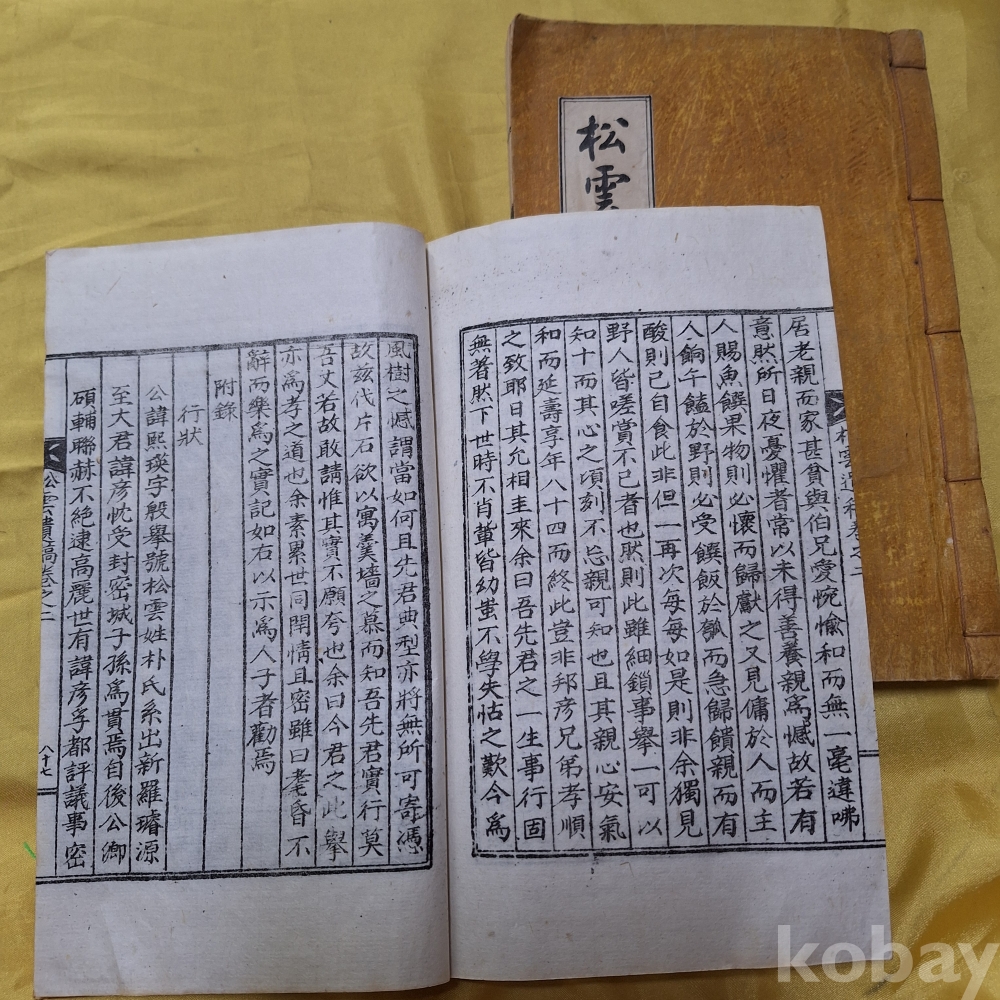 松雲
居老親而家甚貧與伯兄愛惋愉和而無一毫違咈
意然所日夜憂懼者常以未得善養親爲憾故若有
人賜魚饌果物則必懷而歸獻之又見傭於人而主
人餉午饁於野則必受饌飯於瓠而急歸饋親而有
酸則已自食此非但一再次每每如是則非余獨見
野人皆嗟賞不已者也然則此雖細鎖事擧一可以
知十而其心之頃刻不忘親可知也且其親心安氣
和而延壽享年八十四而終此豈非邦彦兄弟孝順
之致耶日其允相圭來余曰吾先君之一生事行固
無著然下世時不肖輩皆幼蚩不學失怙之歎今爲
松雲遺稿卷之二
風樹之憾謂當如何且先君典型亦將無所可寄憑
故玆伐片石欲以寓羹墻之慕而知吾先君實行莫
吾丈若故敢請惟其實不願夸也余曰今君之此擧
亦爲孝之道也余素累世同閈情且密雖曰耄昏不
辭而樂爲之實記如右以示爲人子者勸焉
附錄
行狀
公諱熙瑛字殷擧號松雲姓朴氏系出新羅璿源
至大君諱彦忱受封密城子孫爲貫焉自後公卿
碩輔聯赫不絶逮高麗世有諱彦孚都評議事密
松雲遺稿卷之二
八十七
kobay